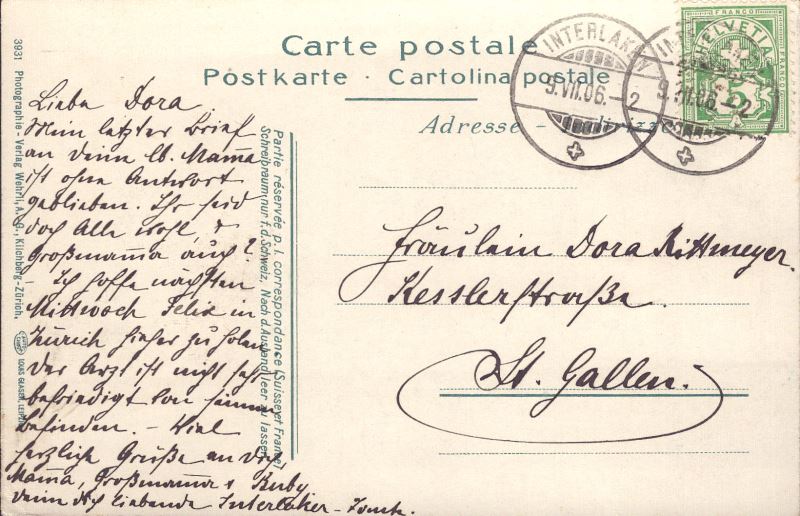 Carte postale
Postkarte · Cartolina postale
Adresse –
INTERLAKEN
9.VII.06.
2
9.VII.06. – 2
FRANCO
HELVETIA
5
3931 Photographie - Verlag Wehrli, A.-G., Kilchberg-Zürich.
LOUIS GLASER, LEIPZIG
Partie réservée p. l. correspondance (Suisse et France)
Schreibraum nur f. d. Schweiz. Nach d. Ausland leer zu lassen
Liebe Dora
Mein letzter Brief
an deine lb. Mama
ist ohne Antwort
geblieben. Ihr seid
doch Alle wohl, &
Großmama auch?
– Ich hoffe nächsten
Mittwoch Felix in
Zürich hieher zu holen
Der Arzt ist nicht sehr
befriedigt von seinem
Befinden. – Viel
herzliche Grüße an Dich,
Mama, Großmama & Ruby
deine Dich liebende Interlaker-
Fräulein Dora Rittmeyer.
Kesslerstraße.
St. Gallen.